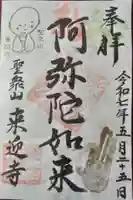 奉拝
令和七年五月二十五日
阿弥陀如来
聖衆山
来迎寺